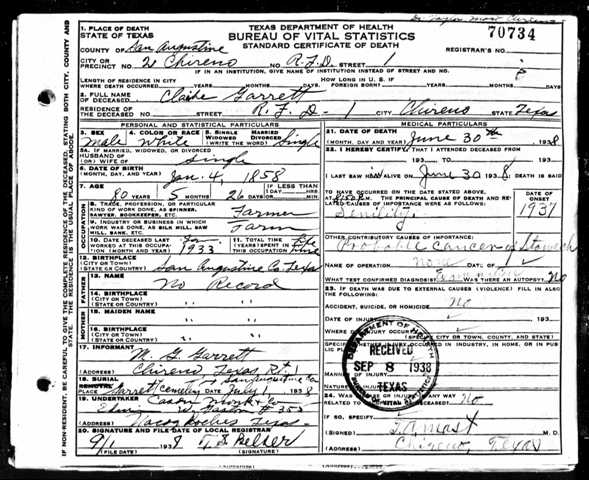 TEXAS DEPARTMENT OF HEALTH
BUREAU OF VITAL STATISTICS
STANDARD CERTIFICATE OF DEATH
70734
1. PLACE OF DEATH
STATE OF TEXAS
COUNTY OF San Augustine
REGISTRAR'S NO.
CITY OR PRECINCT NO. 2 Chireno NO. R.F.D. STREET 1
IF IN AN INSTITUTION, GIVE NAME OF INSTITUTION INSTEAD OF STREET AND NO.
LENGTH OF RESIDENCE IN CITY WHERE DEATH OCCURRED YEARS MONTHS DAYS
HOW LONG IN U. S. IF FOREIGN BORN? YEARS MONTHS DAYS
2. FULL NAME OF DECEASED Garrett
RESIDENCE OF THE DECEASED NO. R.F.D-1 STREET CITY Chireno STATE Texas
PERSONAL AND STATISTICAL PARTICULARS
3. SEX Male
4. COLOR OR RACE White
5. Single Married Widowed Divorced WRITE THE WORD Single
5A. IF MARRIED, WIDOWED, OR DIVORCED
HUSBAND OF (OR) WIFE OF Single
6. DATE OF BIRTH (MONTH, DAY, AND YEAR) Jan. 4, 1858
7. AGE 80 YEARS 5 MONTHS 26 DAYS IF LESS THAN 1 DAY HRS MIN
OCCUPATION
8. TRADE, PROFESSION, OR PARTICULAR KIND OF WORK DONE, AS SPINNER, SAWYER, BOOKKEEPER, ETC. Farmer
9. INDUSTRY OR BUSINESS IN WHICH WORK WAS DONE, AS SILK MILL, SAW MILL, BANK, ETC. Farm
10. DATE DECEASED LAST WORKED AT THIS OCCUPATION (MONTH AND YEAR) Jan. 1933
11. TOTAL TIME (YEARS) SPENT IN OCCUPATION Life time
12. BIRTHPLACE (CITY OR TOWN) (STATE OR COUNTRY) San Augustine Co. Texas
FATHER
13. NAME No Record
14. BIRTHPLACE (CITY OR TOWN) (STATE OR COUNTRY) " "
MOTHER
15. MAIDEN NAME " "
16. BIRTHPLACE (CITY OR TOWN) (STATE OR COUNTRY) " "
17. INFORMANT M. G. Garrett
(ADDRESS) Chireno Texas Rt. 1
18. BURIAL Garrett Cemetery San Augustine Co DATE July 1 1938
19. UNDERTAKER Cason Monk & Co
Nacogdoches Texas
20. SIGNATURE AND FILE DATE OF LOCAL REGISTRAR
9/1 1938
(FILE DATE) (SIGNATURE)
MEDICAL PARTICULARS
21. DATE OF DEATH (MONTH, DAY AND YEAR) June 30th 1938
22. I HEREBY CERTIFY, THAT I ATTENDED DECEASED FROM
193 TO 193
I LAST SAW ALIVE ON June 30 1938 DEATH IS SAID
TO HAVE OCCURRED ON THE DATE STATED ABOVE, AT M.
THE PRINCIPAL CAUSE OF DEATH AND RELATED CAUSES OF IMPORTANCE WERE AS FOLLOWS: DATE OF ONSET
Senility 1937
OTHER CONTRIBUTORY CAUSES OF IMPORTANCE:
Probable Cancer of Stomach
NAME OF OPERATION None DATE OF
WHAT TEST CONFIRMED DIAGNOSIS? WAS THERE AN AUTOPSY? No
23. IF DEATH WAS DUE TO EXTERNAL CAUSES (VIOLENCE) FILL IN ALSO THE FOLLOWING:
ACCIDENT, SUICIDE, OR HOMICIDE No
DATE OF INJURY
WHERE DID INJURY OCCUR?
(SPECIFY CITY OR TOWN, COUNTY, AND STATE)
SPECIFY WHETHER INJURY OCCURRED IN INDUSTRY, IN HOME, OR IN PUBLIC PLACE
MANNER OF INJURY
NATURE OF INJURY
24. WAS DISEASE OR INJURY IN ANY WAY RELATED TO OCCUPATION OF DECEASED? No
IF SO, SPECIFY
(SIGNED) T. A. Mast
(ADDRESS) Chireno, Texas
DEPARTMENT OF HEALTH
RECEIVED
SEP 8 1938
TEXAS
BUREAU OF VITAL STATISTICS